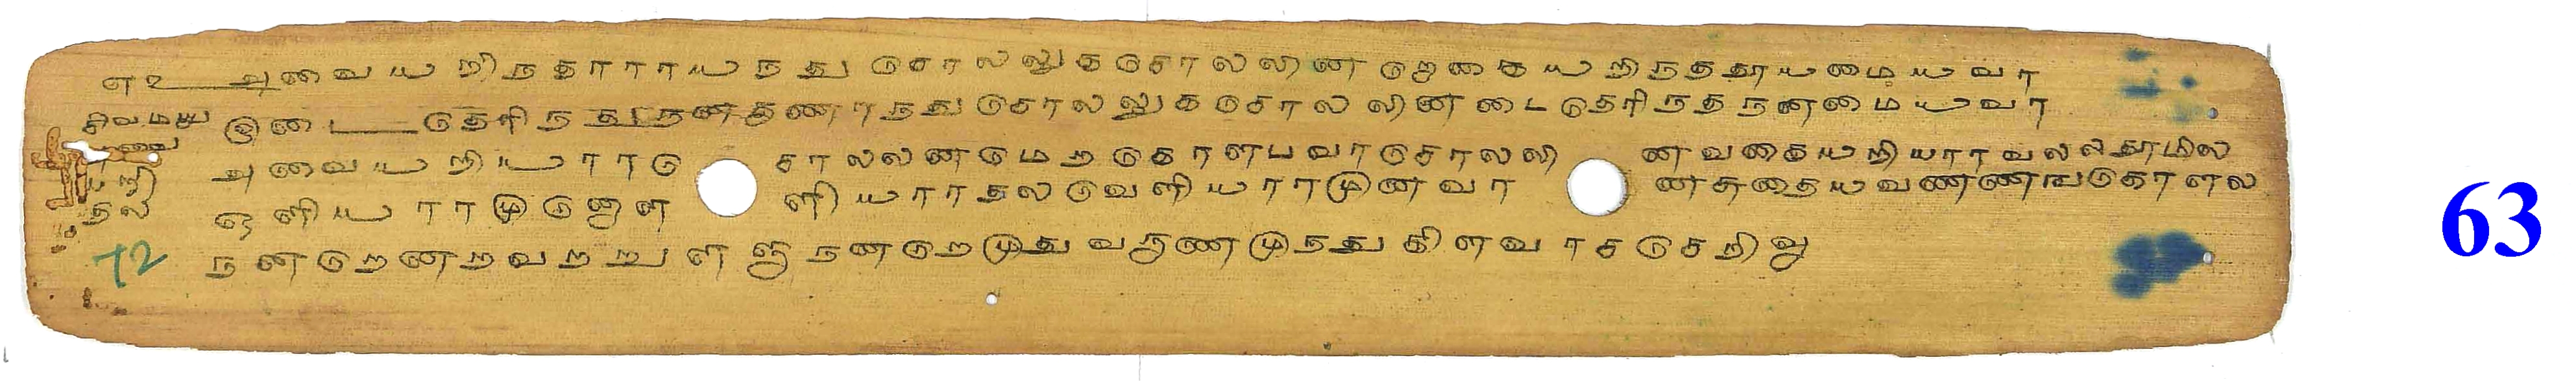 எ௨ அவையறிநதாராயநதுசொலலுகசொலலினறொகையறிநததூயமையவா
இடைதெரிநதுநனகுணாநதுசொலலுகசொலலினடைதெரிநதநனமையவர
அவையறியாராசொலலனமேறகொளபவாசொலலினவகையறியாராவலலதூமில
யறி
ஒளியாராமுனொளளியாராதலவெளியாராமுனவானசுதையவணணஙகொளல
தல
நனறெனறவறறுளளுநனறெமுதுவருணமுநதுகிளவாசசெறிவு
72
63